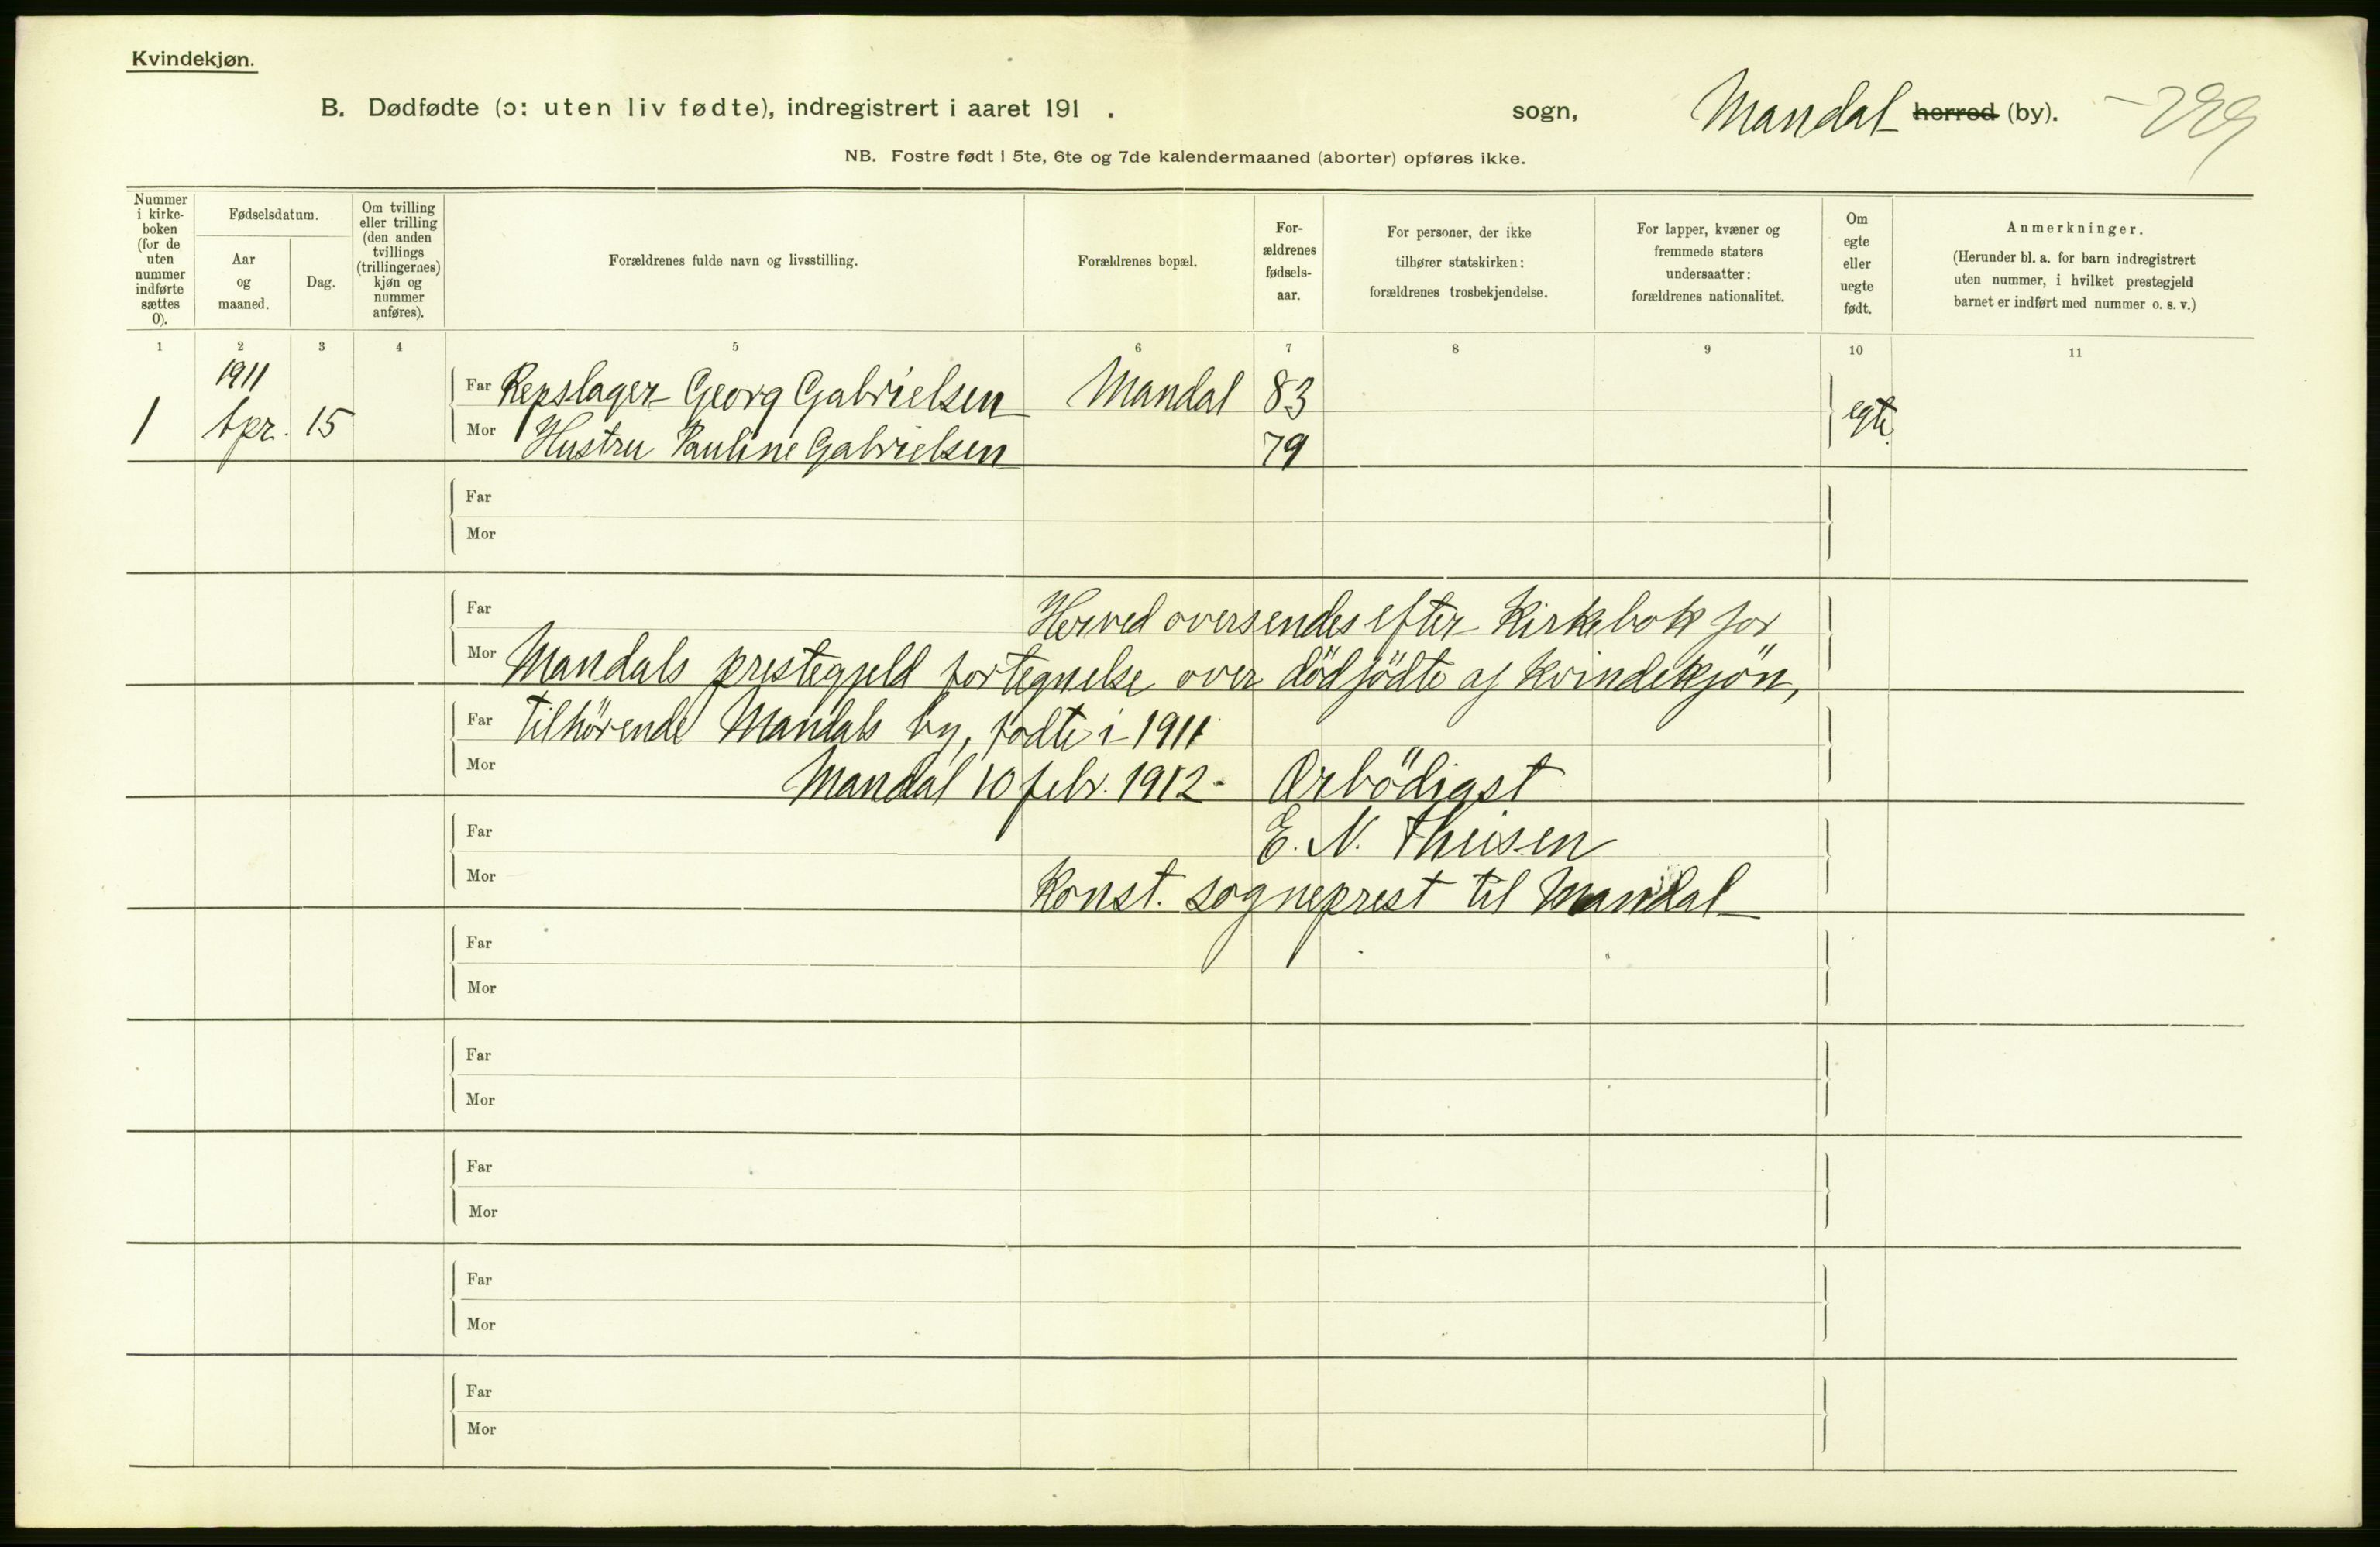 Kvindekjøn.
B. Dødfødte (ɔ: uten liv fødte), indregistrert i aaret 191 .
sogn, Mandal herred (by). - 229
NB. Fostre født i 5te, 6te og 7de kalendermaaned (aborter) opføres ikke.
Nummer
i kirke-
boken
(for de
uten
nummer
indførte
sættes
0).
Fødselsdatum.
Aar
og
maaned.
Dag.
Om tvilling
eller trilling
(den anden
tvillings
(trillingernes)
kjøn og
nummer
anføres).
Forældrenes fulde navn og livsstilling.
Forældrenes bopæl.
For-
ældrenes
fødsels-
aar.
For personer, der ikke
tilhører statskirken:
forældrenes trosbekjendelse.
For lapper, kvæner og
fremmede staters
undersaatter:
forældrenes nationalitet.
Om
egte
eller
uegte
født.
Anmerkninger.
(Herunder bl. a. for barn indregistrert
uten nummer, i hvilket prestegjeld
barnet er indført med nummer o. s. v.)
1 2 3 4 5 6 7 8 9 10 11
1911
Far Repslager Georg Gabrielsen Mandal 83
1 Apr. 15 egte
Mor Hustru Pauline Gabrielsen 79
Far
Mor
Far Herved oversendes efter Kirkebok for
Mor Mandals prestegjeld fortegnelse over dödfödte af kvindekjön,
Far tilhörende Mandals by, fødte i 1911
Mor Mandal 10 febr. 1912. Ærbödigst
Far E. N. Thuisen
Mor Konst. sogneprest til Mandal
Far
Mor
Far
Mor
Far
Mor
Far
Mor
Far
Mor